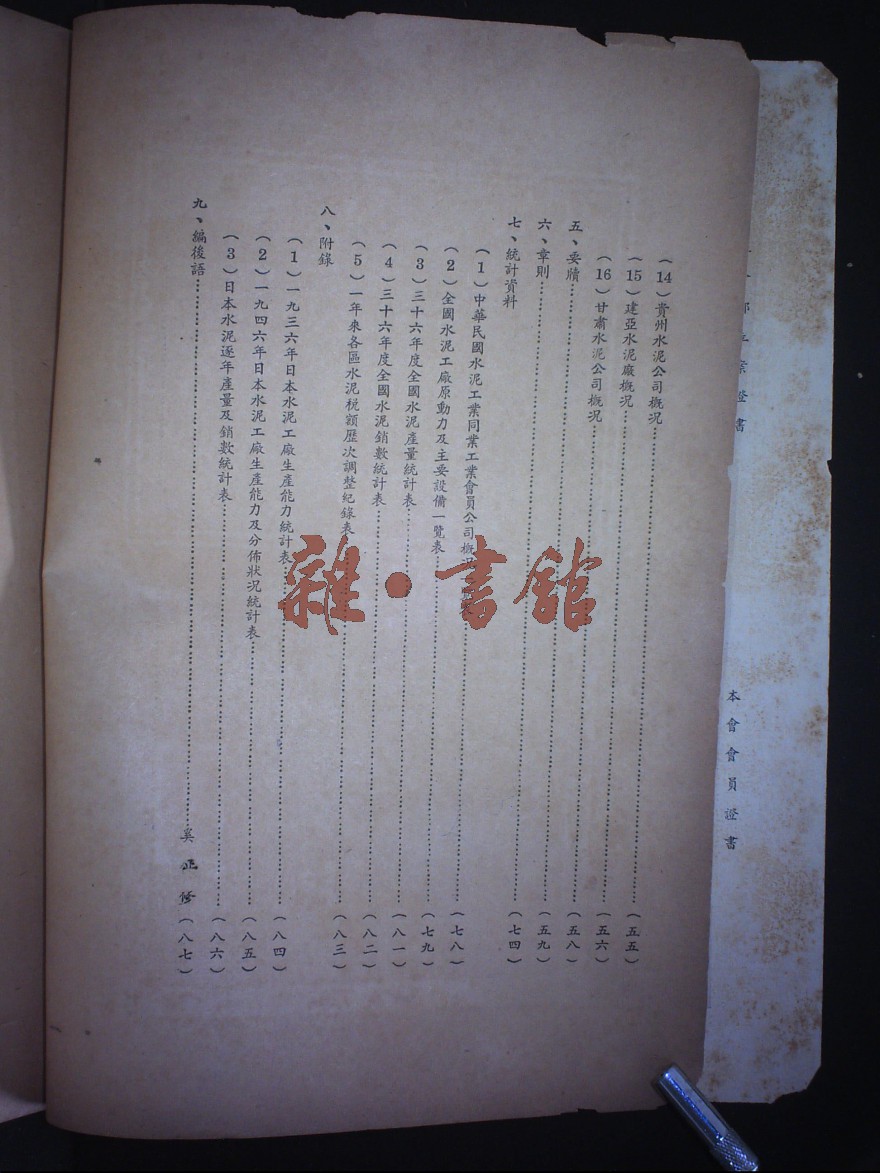 本會會員證書
(14)貴州水泥公司概况……(五五)
(15)建亞水泥廠概况……(五六)
(16)甘肅水泥公司概况……(五八)
五、要牘……(五九)
六、章則……(七四)
七、統計資料
(1)中華民國水泥工業同業工業會員公司概况……(七八)
(2)全國水泥工廠原動力及主要設備一覽表……(七九)
(3)三十六年度全國水泥產量統計表……(八一)
(4)三十六年度全國水泥銷數統計表……(八二)
(5)一年來各區水泥税額歷次調整紀錄表……(八三)
八、附錄
(1)一九三六年日本水泥工廠生產能力統計表……(八四)
(2)一九四六年日本水泥工廠生產能力及分佈狀况統計表……(八五)
(3)日本水泥逐年產量及銷數統計表……(八六)
九、編後語……吳正修(八七)
雜·書館